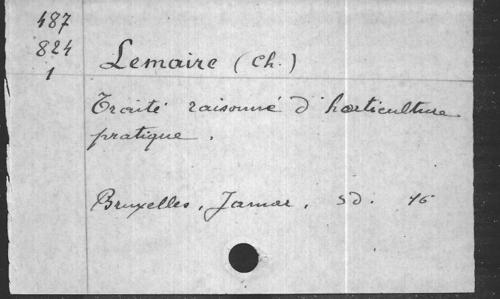 487
824
1
Lemaire (Ch.)
Traité raisonné d'horticulture
pratique.
Bruxelles, Jamar, sd. 16